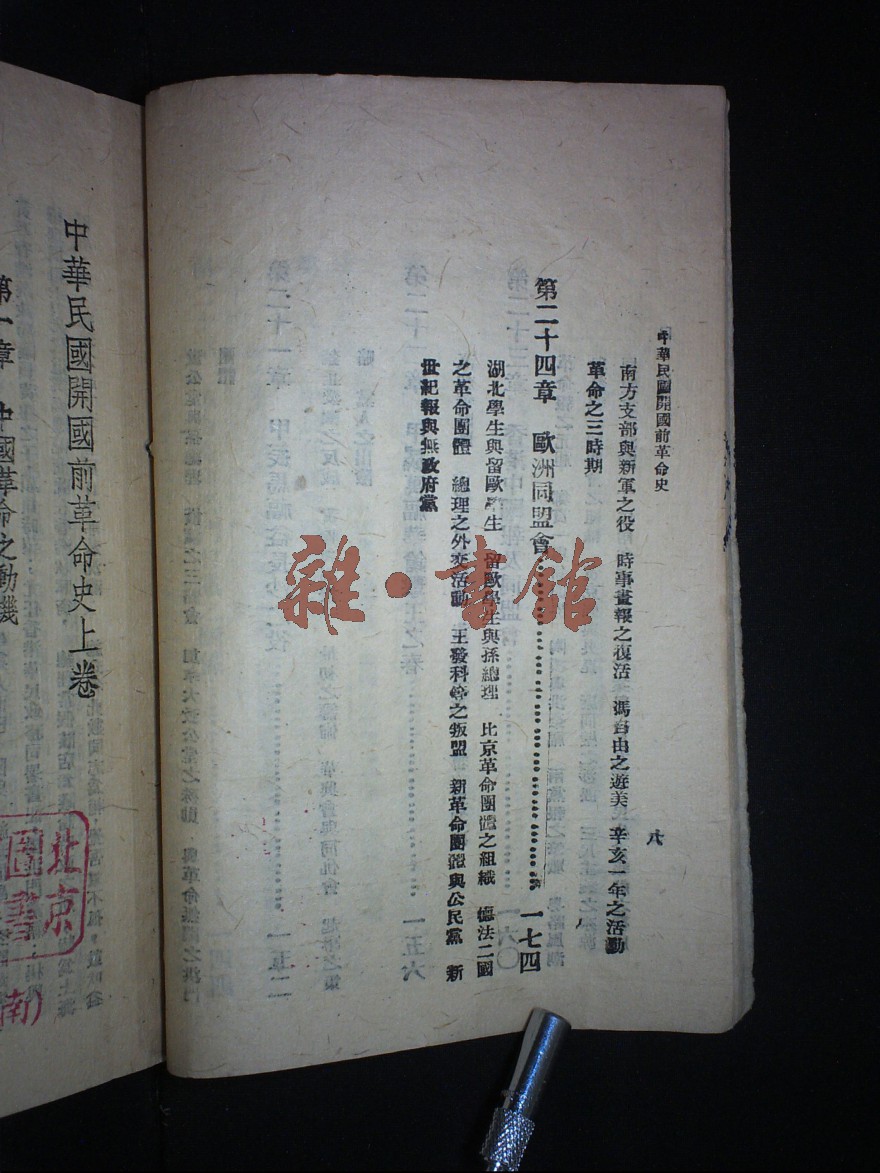 中華民國開國前革命史
八
南方支部與新軍之役　時事畫報之復活　馮自由之遊美　辛亥一年之活動
革命之三時期
第二十四章　歐洲同盟會…………一七四
湖北學生與留歐學生　留歐學生與孫總理　比京革命團體之組織　德法二國
之革命團體　總理之外交活動　王發科等之叛盟　新革命團體與公民黨　新
世紀報與無政府黨
中華民國開國前革命史上卷
第一章　中國革命之動機
北京
圖書
南
雜·書館